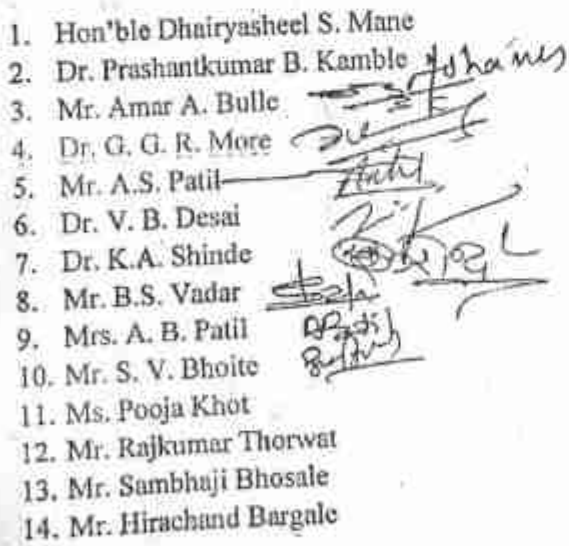 1. Hon'ble Dhairyasheel S. Mane
2. Dr. Prashantkumar B. Kamble
3. Mr. Amar A. Bulle
4. Dr. G. G. R. More
5. Mr. A.S. Patil
6. Dr. V. B. Desai
7. Dr. K.A. Shinde
8. Mr. B.S. Vadar
9. Mrs. A. B. Patil
10. Mr. S. V. Bhoite
11. Ms. Pooja Khot
12. Mr. Rajkumar Thorwat
13. Mr. Sambhaji Bhosale
14. Mr. Hirachand Bargale